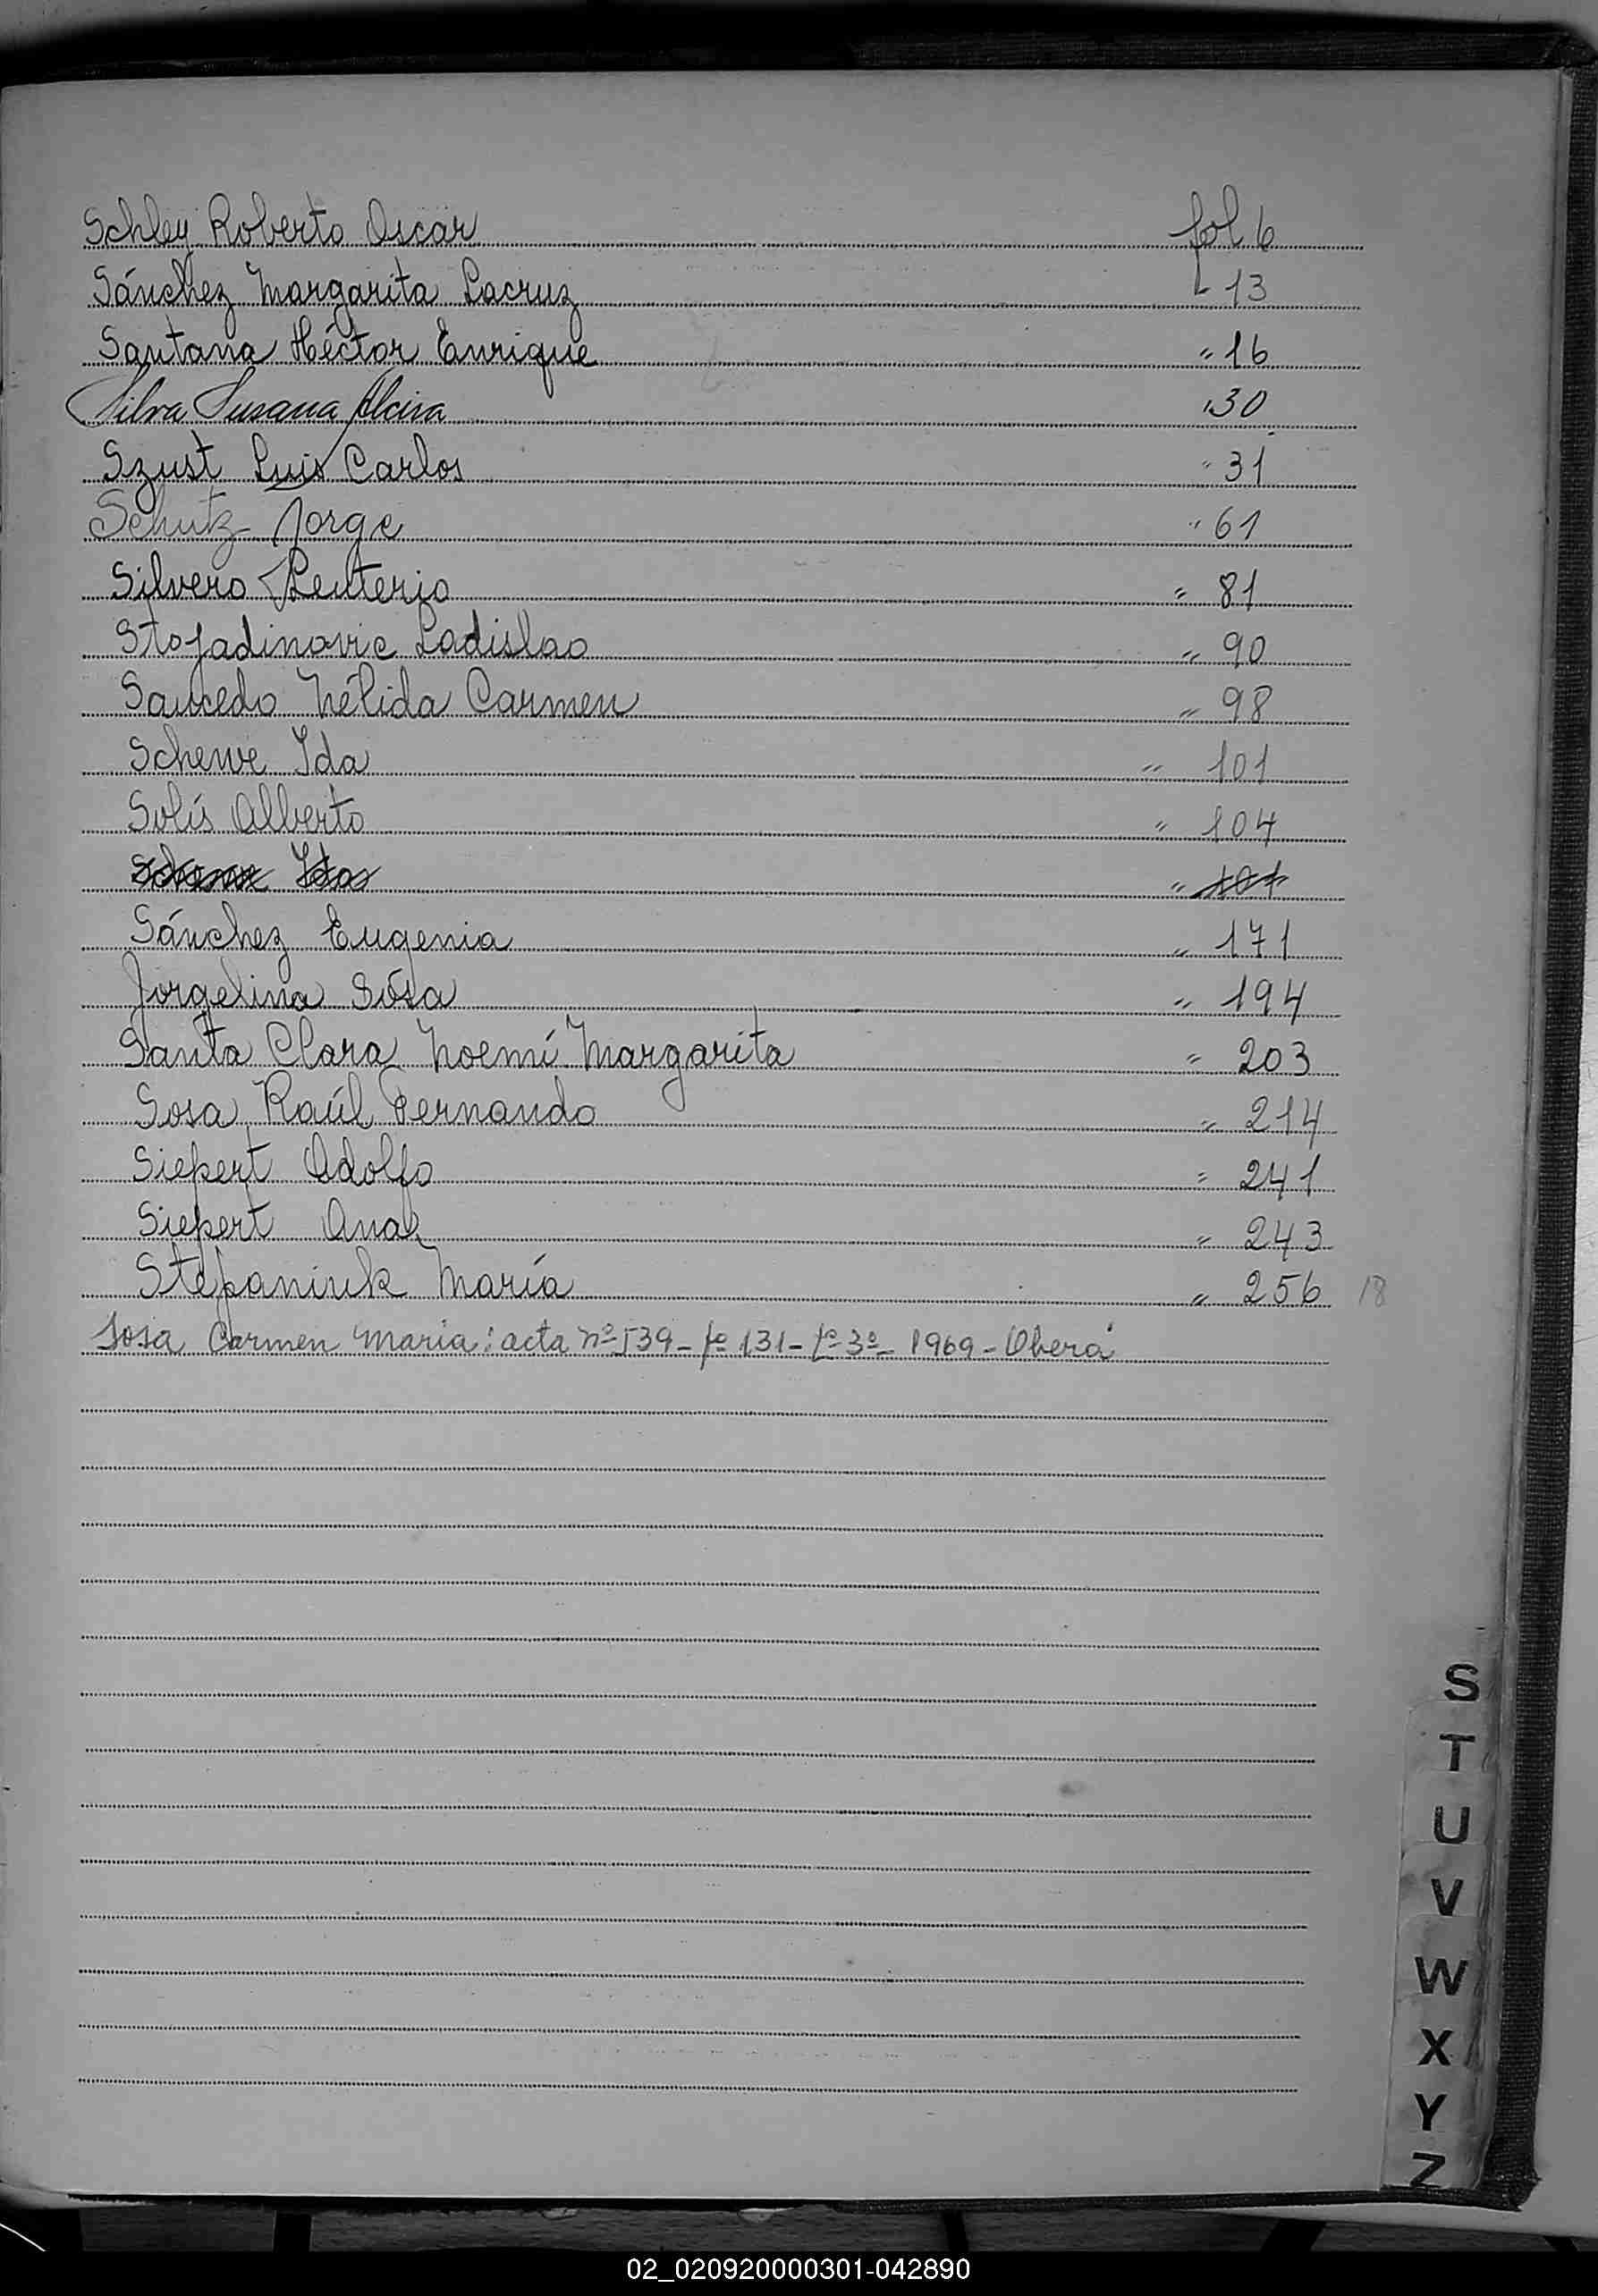 Schley Roberto Oscar fol 6
Sánchez Margarita Lacruz " 13
Santana Héctor Enrique " 16
Silva Susana Alcira " 30
Szust Luis Carlos " 31
Schutz Jorge " 61
Silvero " 81
Stojadinovic Ladislao " 90
Saucedo Nélida Carmen " 98
Schewe Ida " 101
Solís Alberto " 104
Schewe Ida " 101
Sánchez Eugenia " 171
Jorgelina Sósa " 194
Santa Clara Noemí Margarita " 203
Sosa Raúl Fernando " 214
Siepert Adolfo " 241
Siepert Ana " 243
Stepaniuk María " 256 18
Sosa Carmen Maria: acta nº 539 - fº 131 - tº 3º - 1969 - Oberá
S
T
U
V
W
X
Y
Z
02_020920000301-042890